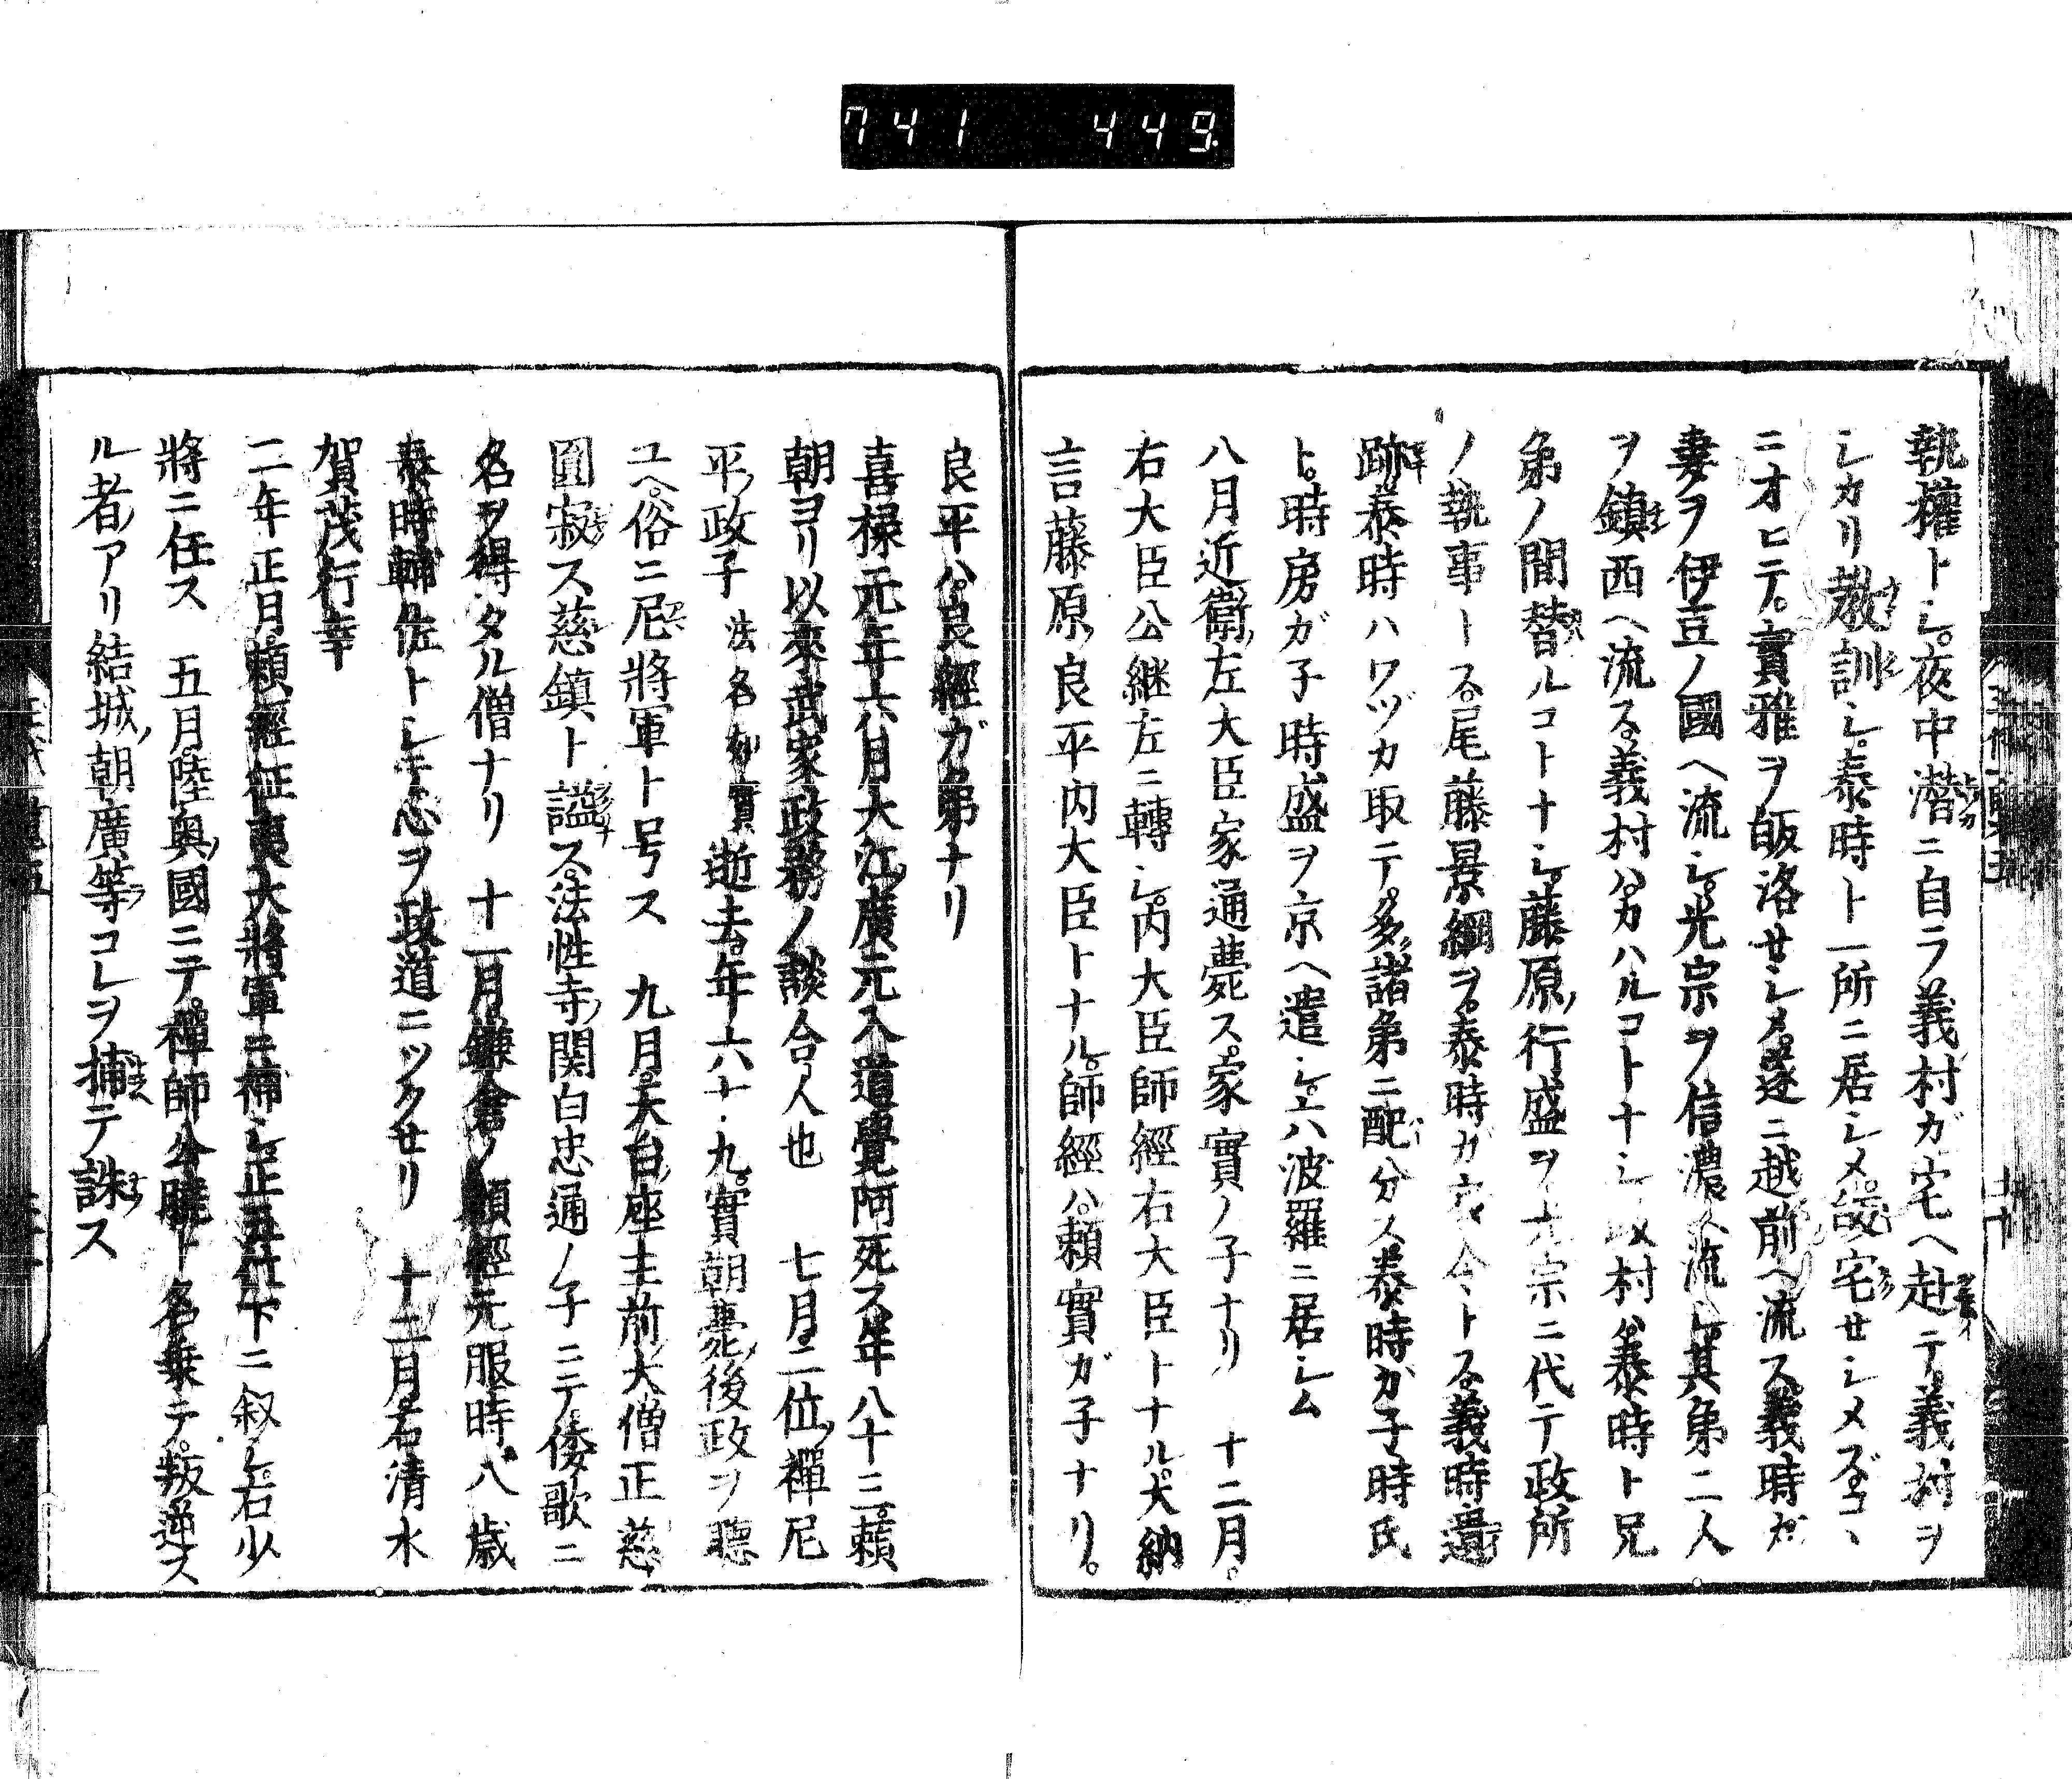 741 449
執權トシ。夜中潜ニ自ラ義村ガ宅ヘ赴テ。義村ヲ
シカリ教訓シ。泰時ト一所ニ居シメ。皈宅セシメズ。コヽ
ニオヒテ。實雅ヲ皈洛セシメ。遂ニ越前ヘ流ス。義時ガ
妻ヲ伊豆ノ國ヘ流シ。光宗ヲ信濃ヘ流シ。其弟二人
ヲ鎮西ヘ流ス。義村ハ。カハルコトナシ 村ハ。泰時ト兄
弟ノ間替ルコトナシ。藤原行盛ヲ光宗ニ代テ政所
ノ執事トス。尾藤景綱ヲ。泰時ガ家令トス。義時遺
跡。泰時ハワヅカ取テ。多諸弟ニ配分ス。泰時ガ子時氏
ト。時房ガ子時盛ヲ京ヘ遣シ。六波羅ニ居シム
八月近衛左大臣家通薨ス。家實ノ子ナリ 十二月。
右大臣公継左ニ轉シ。内大臣師經右大臣トナル。大納
言藤原良平内大臣トナル。師經ハ。頼實ガ子ナリ。
良平ハ。良經ガ弟ナリ
喜禄元年六月大江廣元入道覺阿死ス。年八十三。頼
朝ヨリ以來武家政務ノ談合人也 七月二位禪尼
平政子 法名如實 逝去。年六十九。實朝薨後政ヲ聽
ユヘ。俗ニ尼將軍ト号ス 九月。天台座主前大僧正慈
圓寂ス。慈鎮ト謚ス。法性寺関白忠通ノ子ニテ。倭歌ニ
名ヲ得タル僧ナリ 十一月。鎌倉ノ頼經元服。時八歳
泰時輔佐トシテ。心ヲ政道ニツクセリ 十二月。石清水
賀茂行幸
二年正月頼經征夷大將軍ニ補シ。正五位下ニ叙シ。右少
將ニ任ス 五月陸奥國ニテ。禪師公曉ト名乗テ。叛逆ス
ル者アリ結城朝廣等コレヲ捕テ誅ス